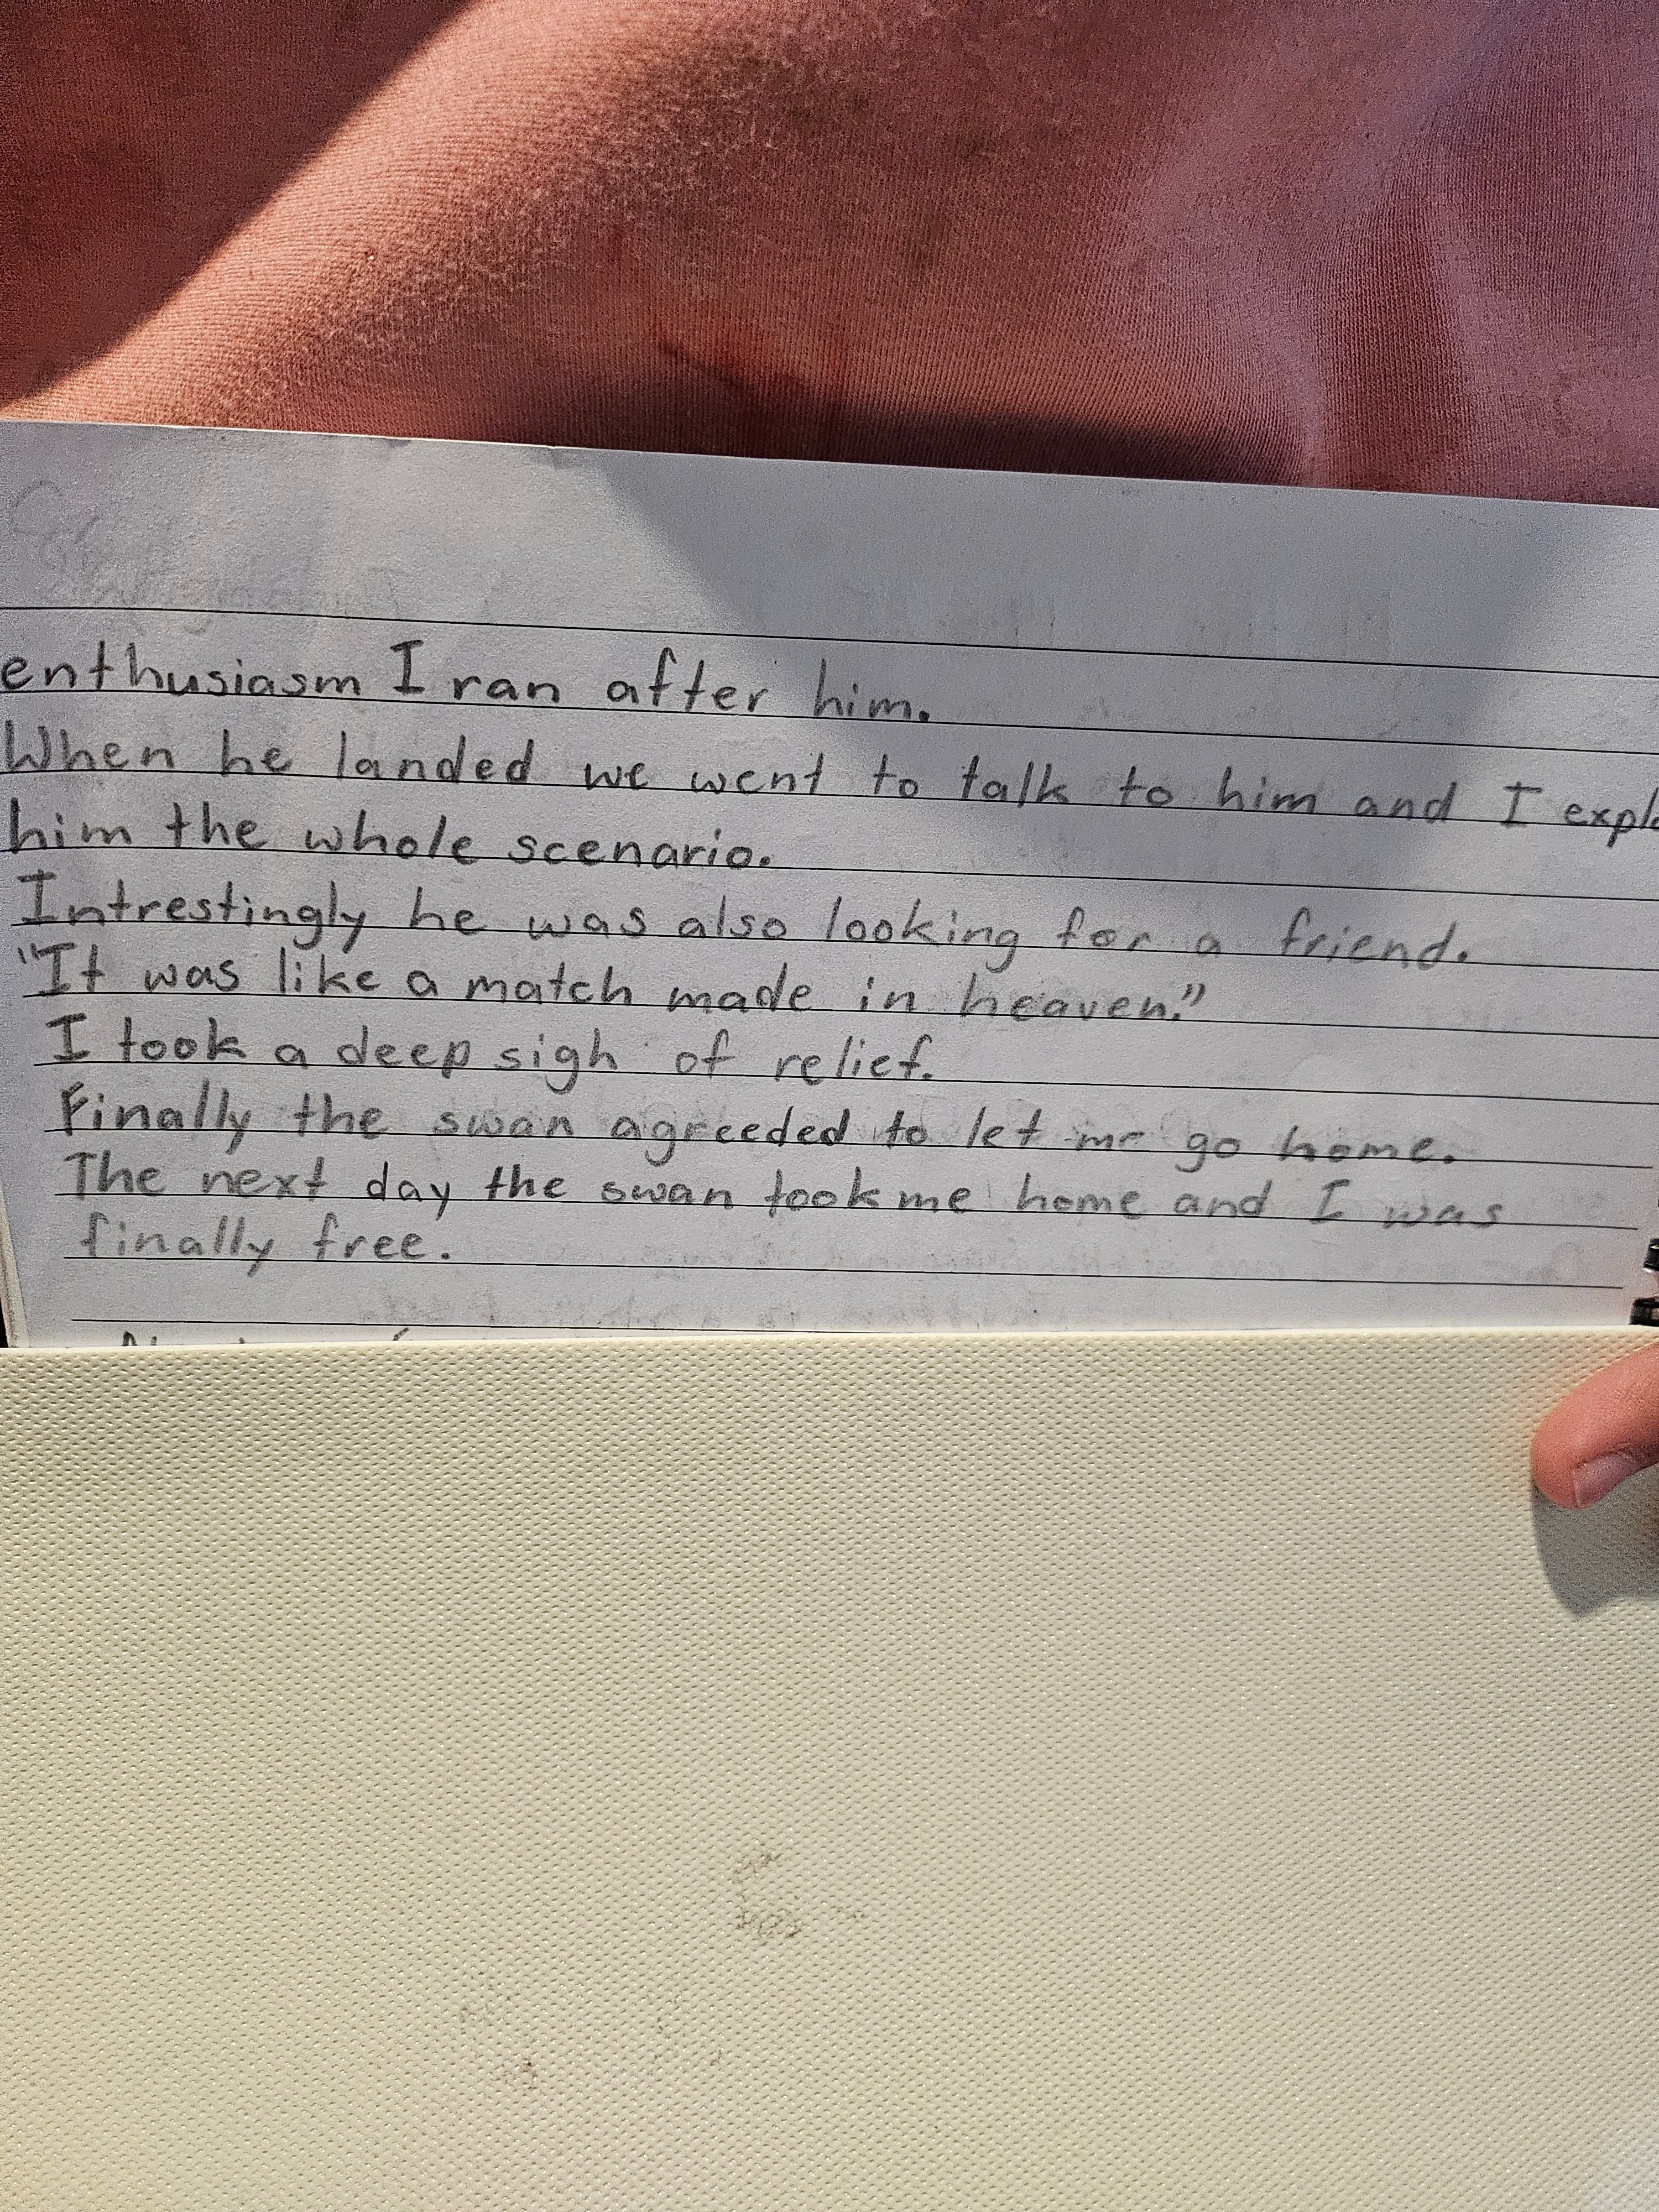 enthusiasm I ran after him.
When he landed we went to talk to him and I expla
him the whole scenario.
Intrestingly he was also looking for a friend.
"It was like a match made in heaven."
I took a deep sigh of relief.
Finally the swan agreeded to let me go home.
The next day the swan took me home and I was
finally free.